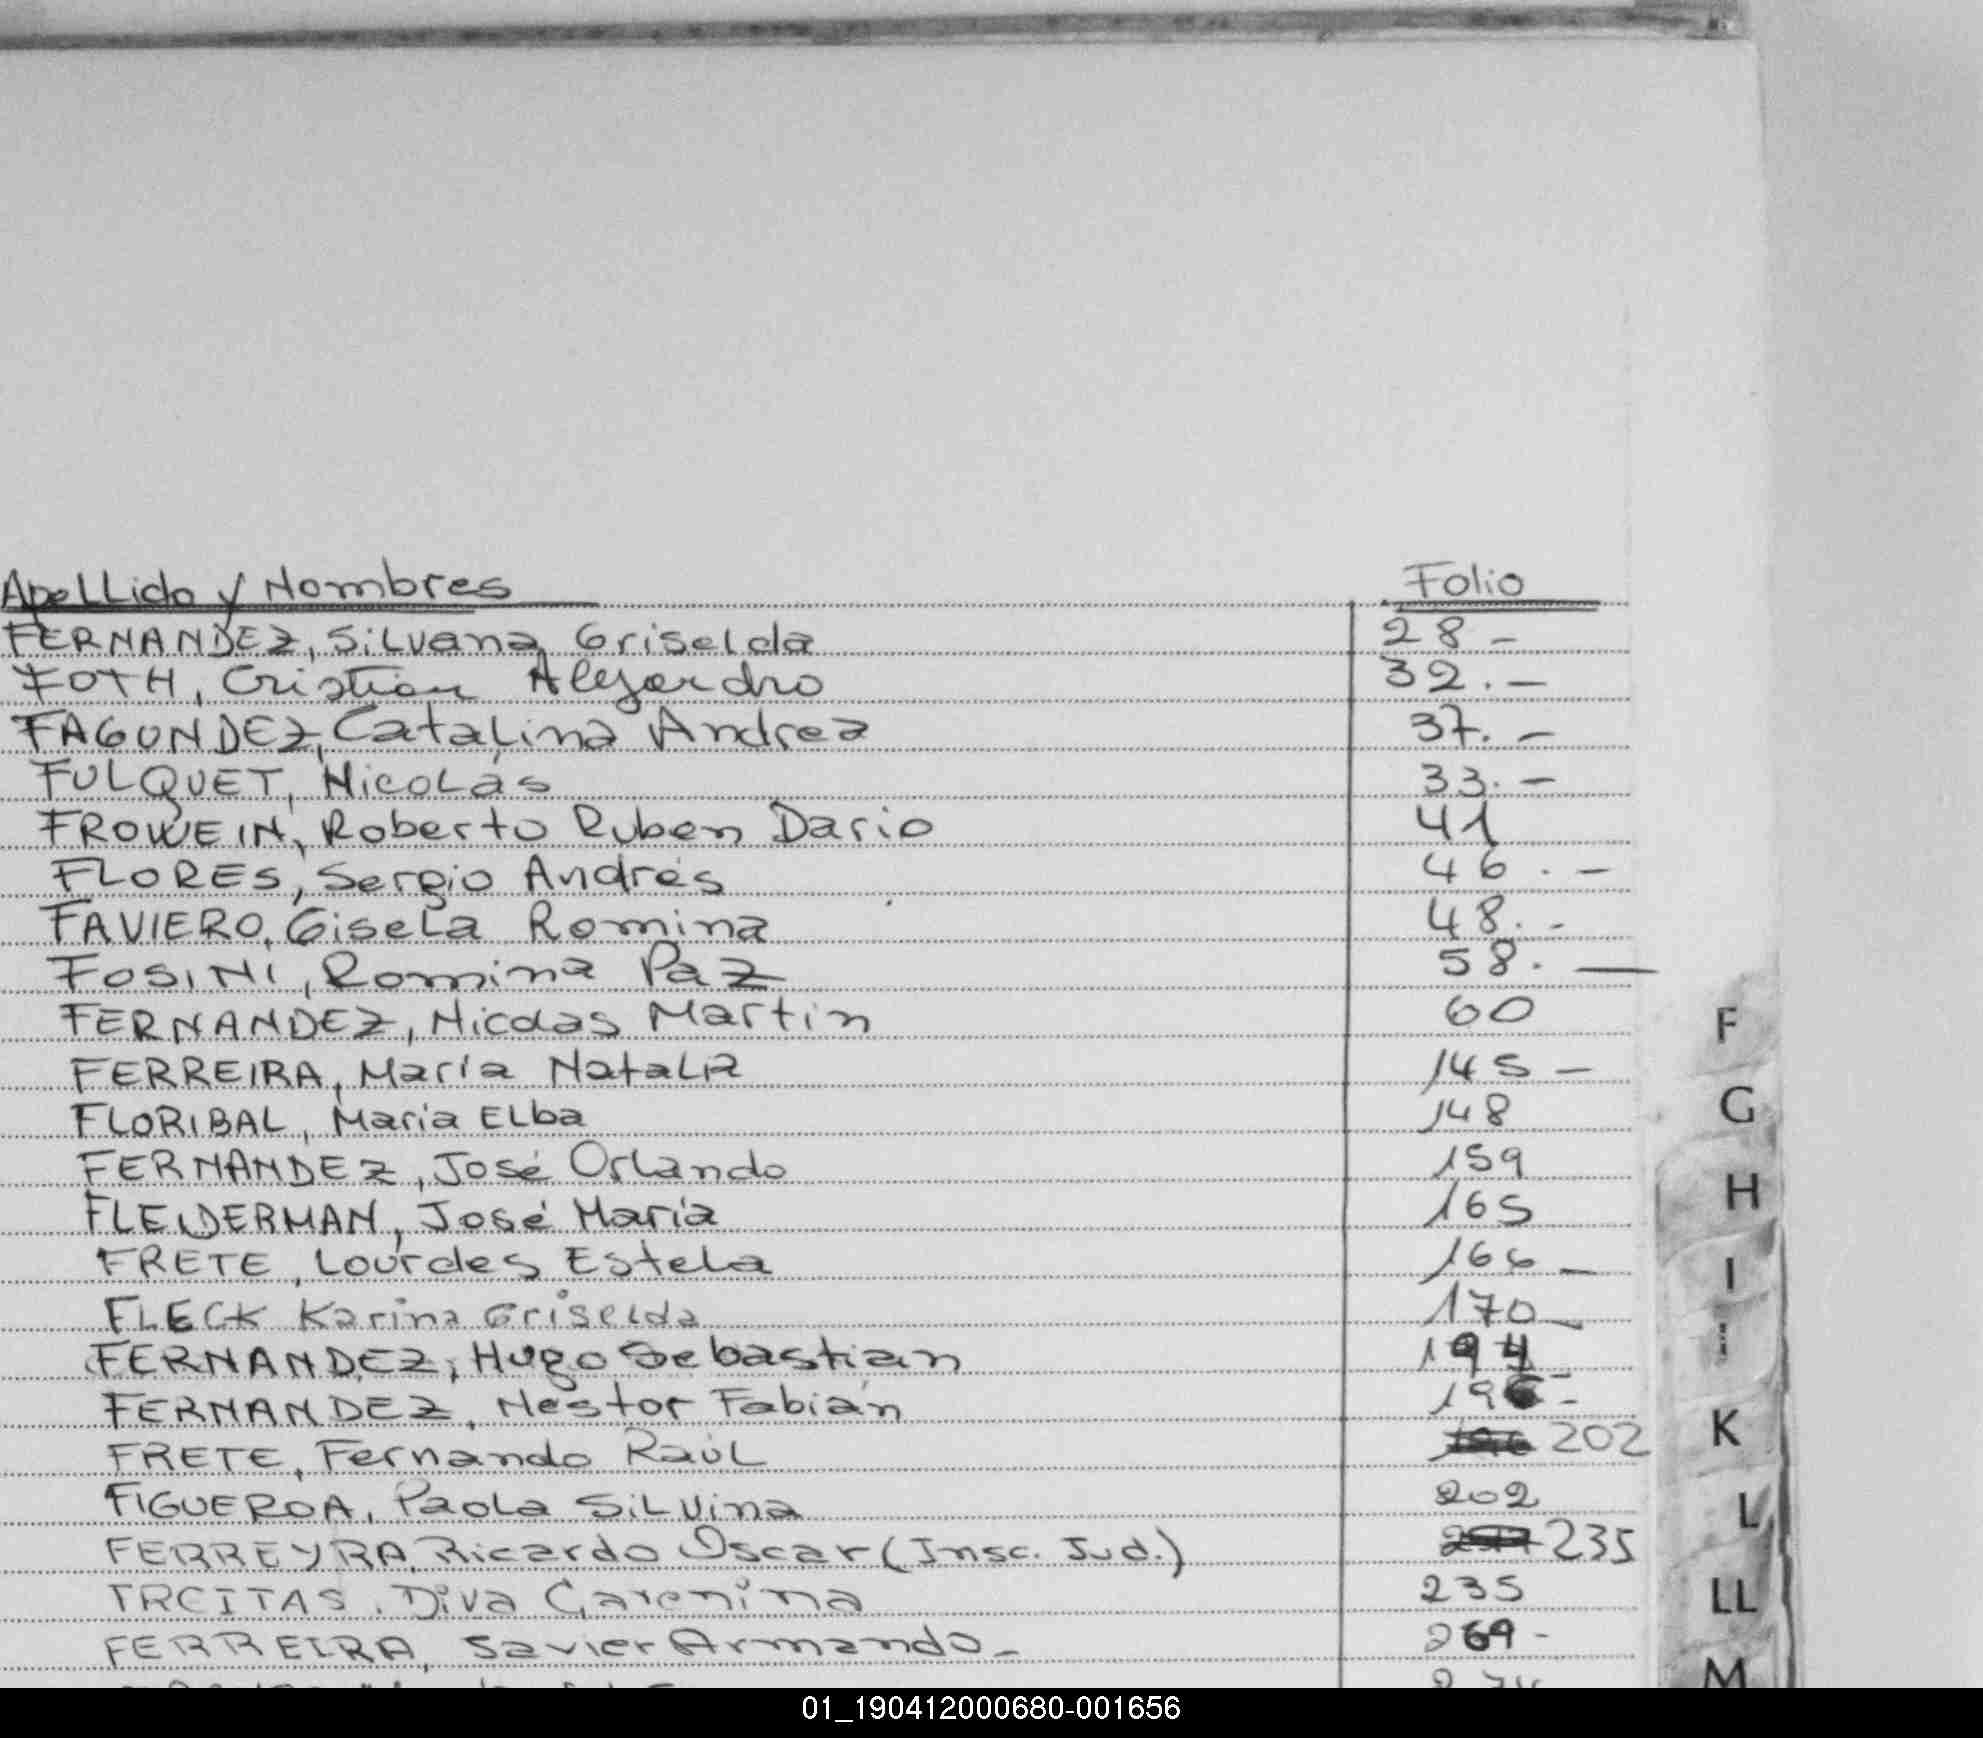 Apellido y Nombres Folio
FERNANDEZ, Silvana Griselda 28 -
FOTH, Cristian Alejandro 32. -
FAGUNDEZ, Catalina Andrea 37. -
FULQUET, Nicolás 33. -
FROWEIN, Roberto Ruben Dario 41
FLORES, Sergio Andrés 46. -
FAVIERO, Gisela Romina 48. -
FOSINI, Romina Paz 58. -
FERNANDEZ, Nicolas Martin 60
FERREIRA, María Natalia 145 -
FLORIBAL, Maria Elba 148
FERNANDEZ, José Orlando 159
FLEIDERMAN, José María 165
FRETE, Lourdes Estela 166 -
FLECK Karina Griselda 170 -
FERNANDEZ, Hugo Sebastián 194
FERNANDEZ, Nestor Fabián 196 -
FRETE, Fernando Raúl 202
FIGUEROA, Paola Silvina 202
FERREYRA, Ricardo Oscar (Insc. Jud.) 235
Diva 235
FERREIRA, Savier Armando - 269 -
F
G
H
I
K
L
LL
M
01_190412000680-001656